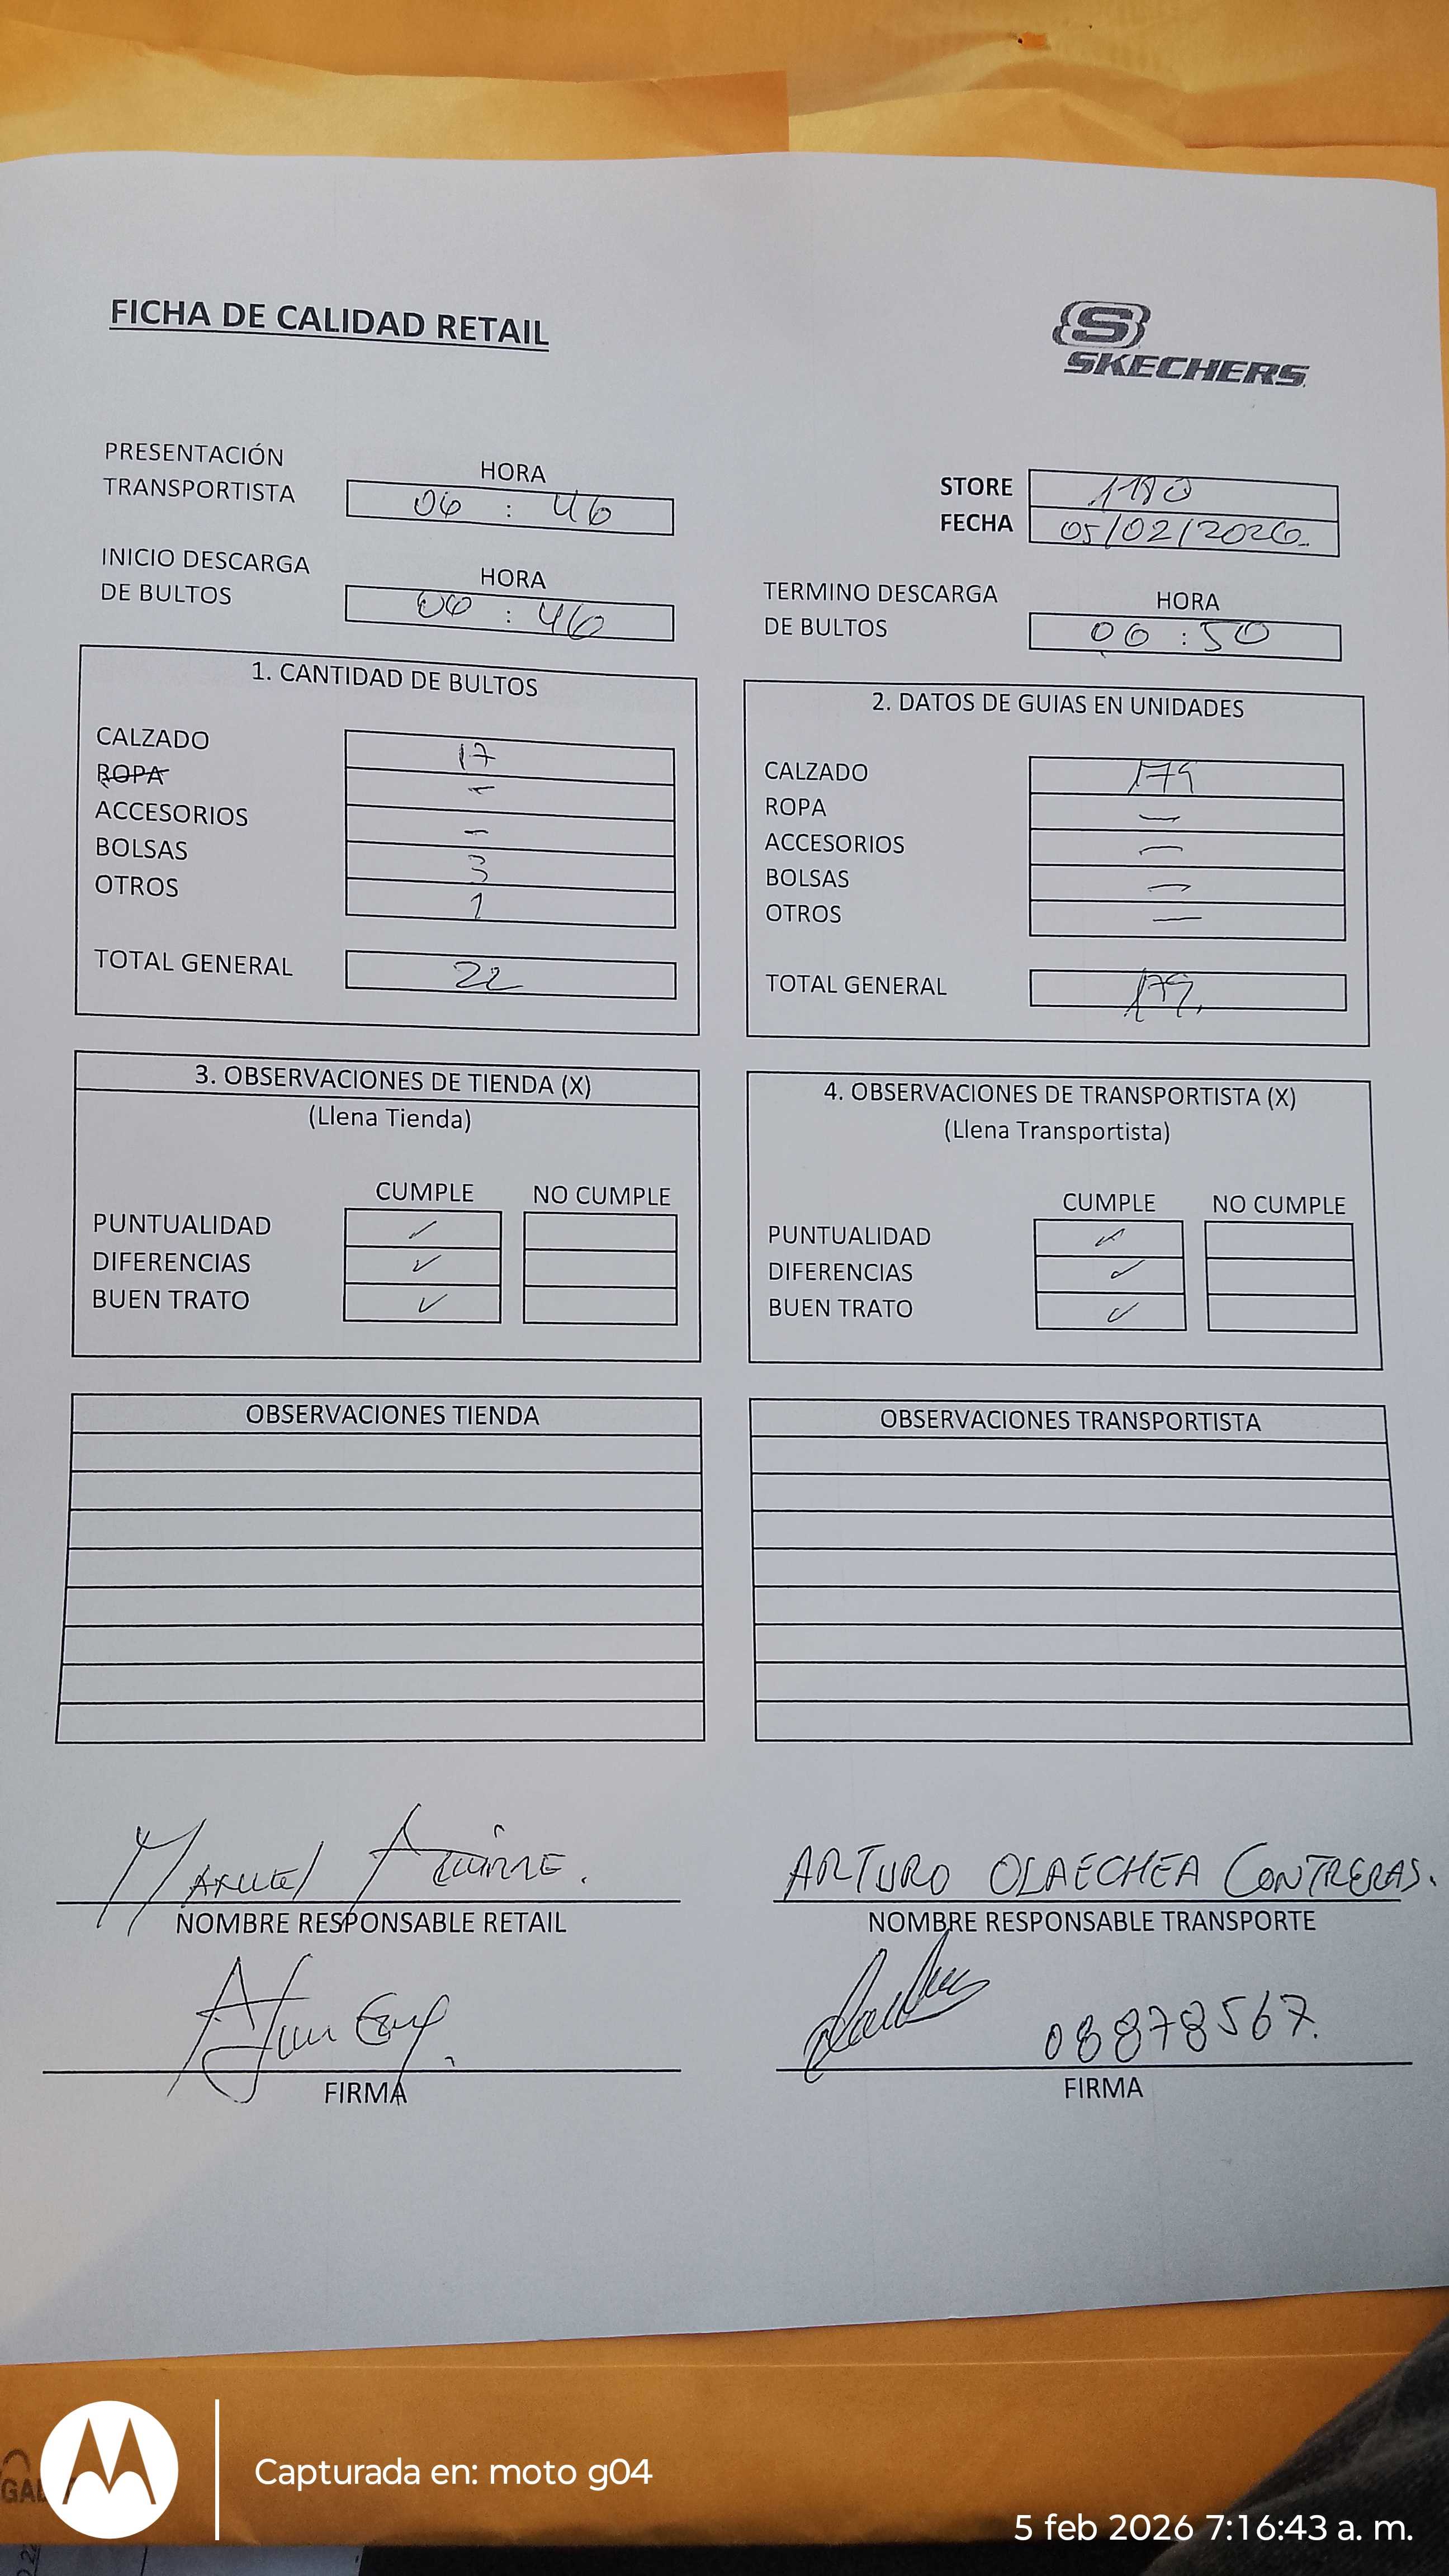 FICHA DE CALIDAD RETAIL
SKECHERS
PRESENTACIÓN TRANSPORTISTA HORA 06 : 46
STORE 1180
FECHA 05/02/2026.
INICIO DESCARGA DE BULTOS HORA 06 : 46
TERMINO DESCARGA DE BULTOS HORA 06 : 50
1. CANTIDAD DE BULTOS
CALZADO 17
ROPA -
ACCESORIOS -
BOLSAS 3
OTROS 1
TOTAL GENERAL 22
2. DATOS DE GUIAS EN UNIDADES
CALZADO 179
ROPA -
ACCESORIOS -
BOLSAS -
OTROS -
TOTAL GENERAL 179.
3. OBSERVACIONES DE TIENDA (X)
(Llena Tienda)
CUMPLE NO CUMPLE
PUNTUALIDAD ✓
DIFERENCIAS ✓
BUEN TRATO ✓
4. OBSERVACIONES DE TRANSPORTISTA (X)
(Llena Transportista)
CUMPLE NO CUMPLE
PUNTUALIDAD ✓
DIFERENCIAS ✓
BUEN TRATO ✓
OBSERVACIONES TIENDA
OBSERVACIONES TRANSPORTISTA
MANUEL AGUIRRE.
NOMBRE RESPONSABLE RETAIL
FIRMA
ARTURO OLAECHEA CONTRERAS.
NOMBRE RESPONSABLE TRANSPORTE
08878567.
FIRMA
Capturada en: moto g04
5 feb 2026 7:16:43 a. m.